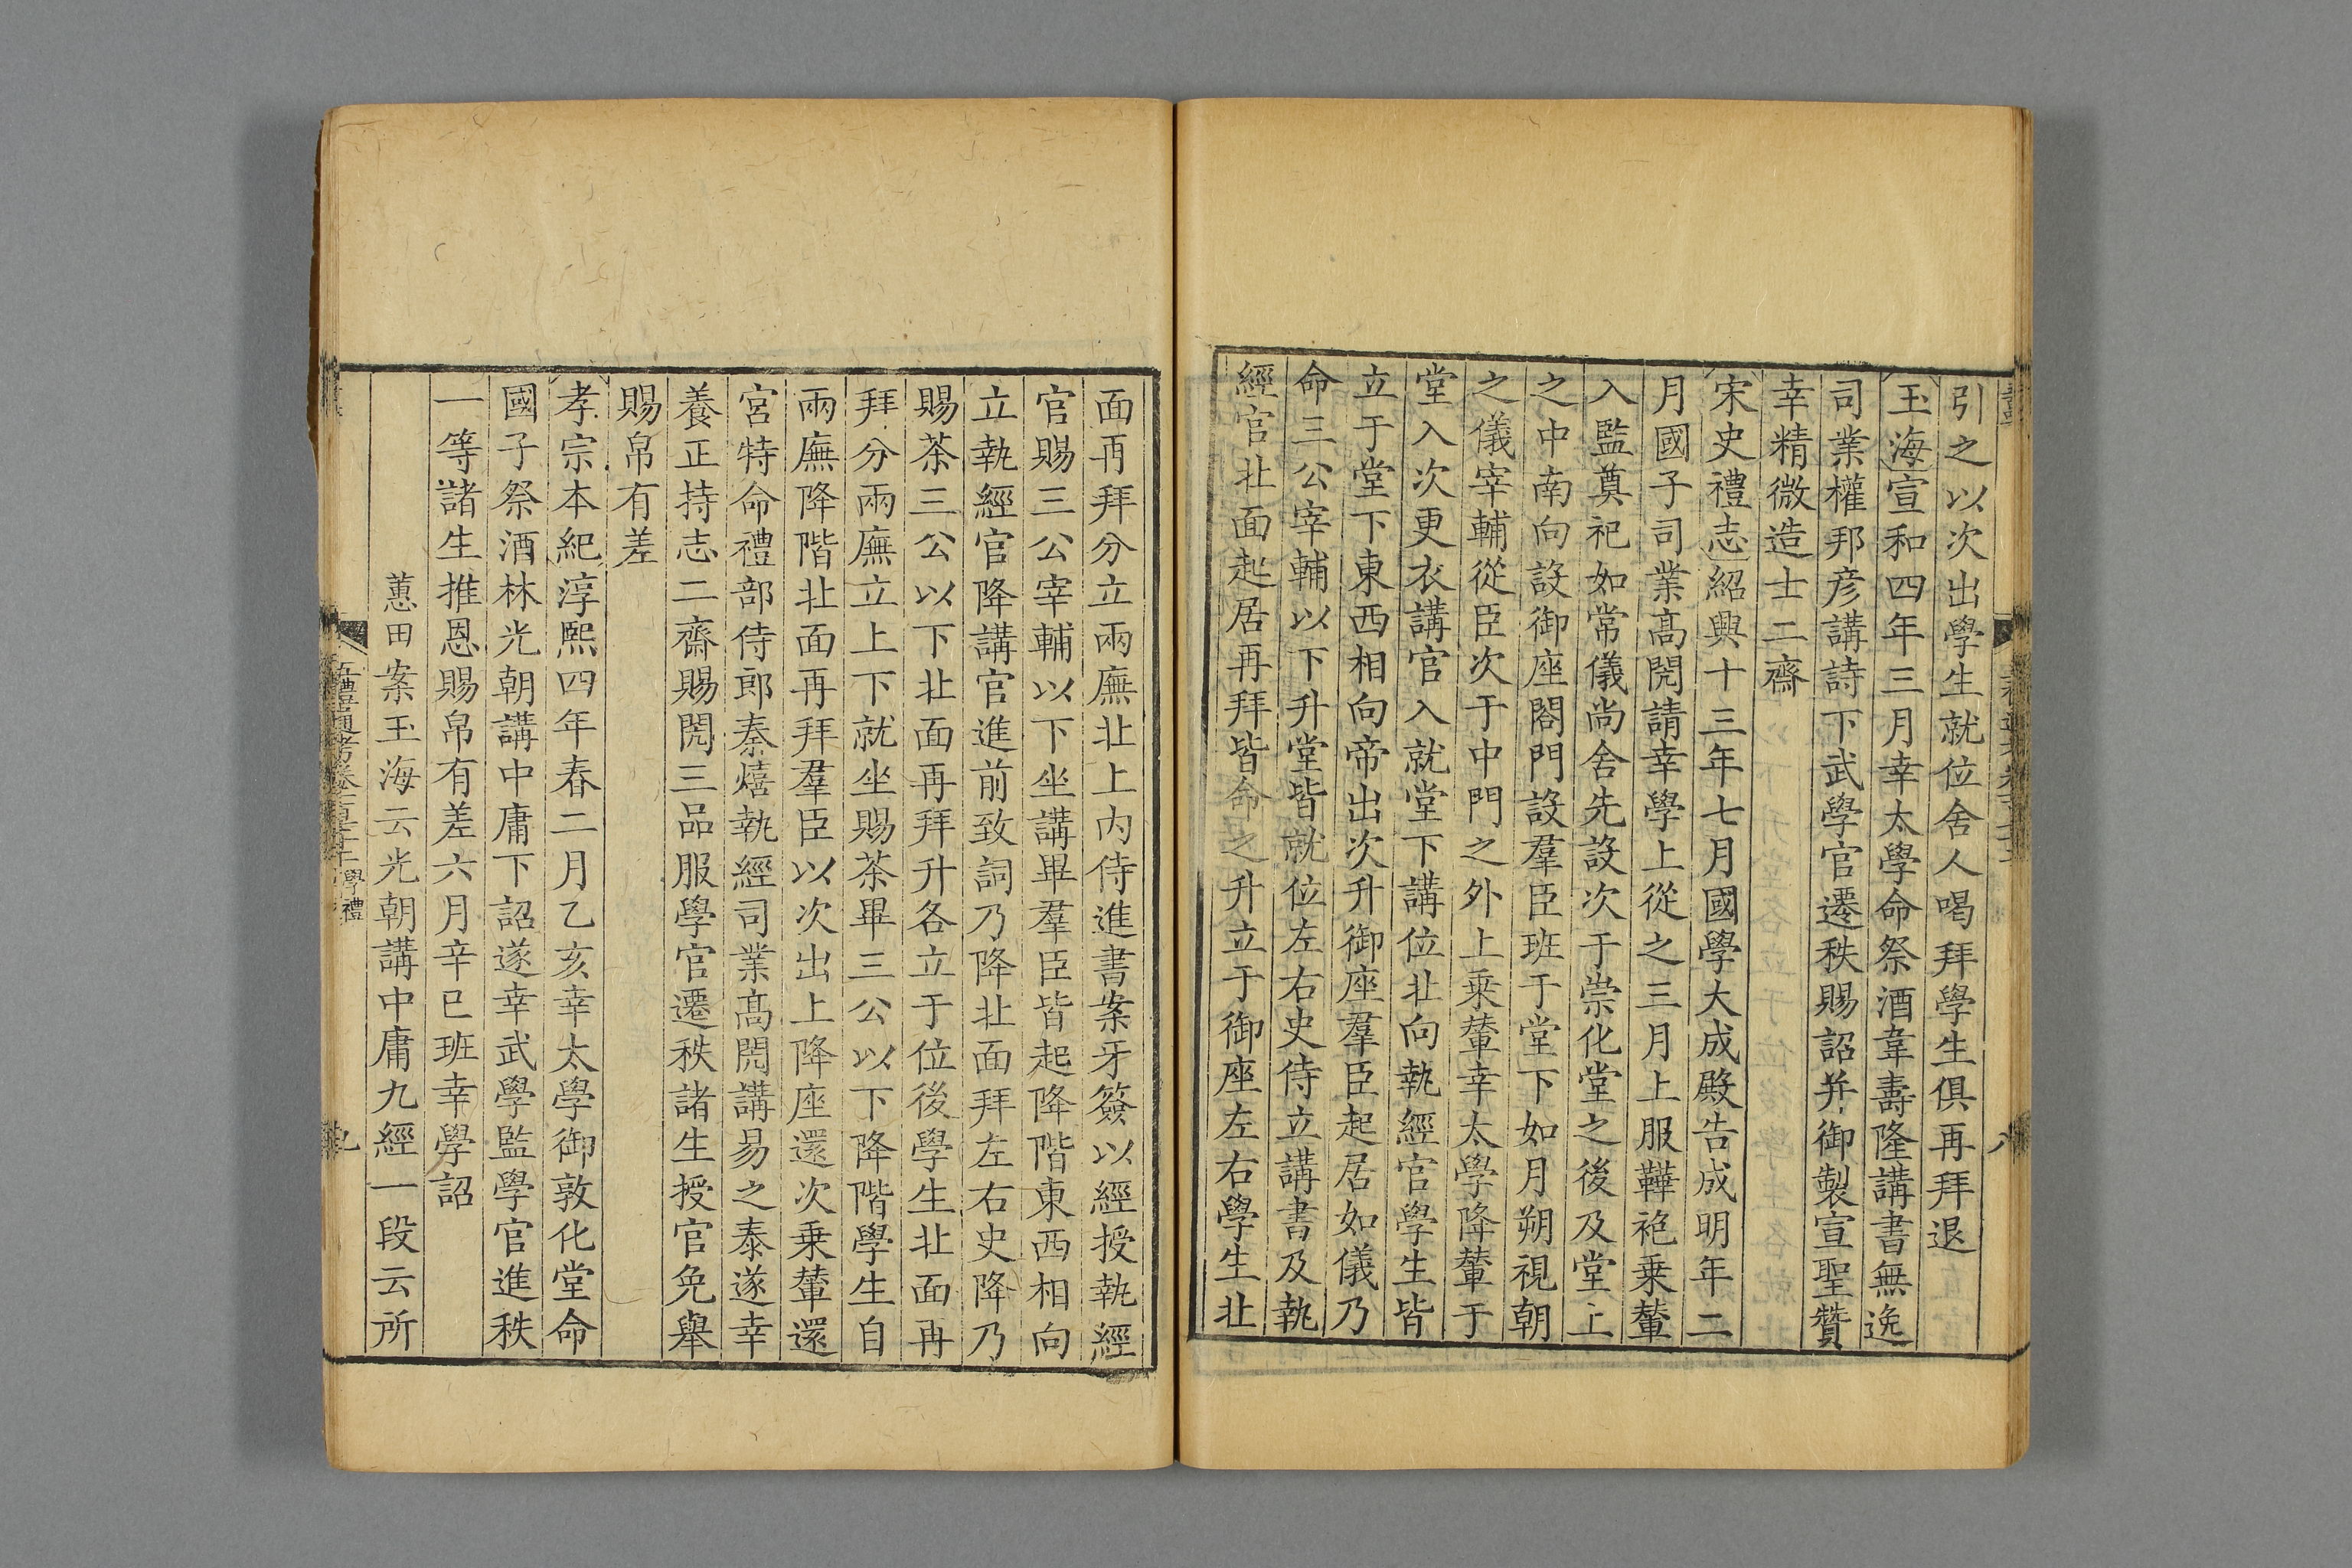 引之以次出學生就位舍人喝拜學生俱再拜退
玉海宣和四年三月幸太學命祭酒韋壽隆講書無逸
司業權邦彦講詩下武學官遷秩賜詔并御製宣聖贊
幸精微造士二齋
宋史禮志紹興十三年七月國學大成殿告成明年二
月國子司業高閌請幸學上從之三月上服鞾袍乗輦
入監奠祀如常儀尚舍先設次于崇化堂之後及堂上
之中南向設御座閤門設羣臣班于堂下如月朔視朝
之儀宰輔從臣次于中門之外上乗輦幸太學降輦于
堂入次更衣講官入就堂下講位北向執經官學生皆
立于堂下東西相向帝出次升御座羣臣起居如儀乃
命三公宰輔以下升堂皆就位左右史侍立講書及執
經官北面起居再拜皆命之升立于御座左右學生北
八
面再拜分立兩廡北上内侍進書案牙籤以經授執經
官賜三公宰輔以下坐講畢羣臣皆起降階東西相向
立執經官降講官進前致詞乃降北面拜左右史降乃
賜茶三公以下北面再拜升各立于位後學生北面再
拜分兩廡立上下就坐賜茶畢三公以下降階學生自
兩廡降階北面再拜羣臣以次出上降座還次乗輦還
宮特命禮部侍郎秦熺執經司業高閌講易之泰遂幸
養正持志二齋賜閌三品服學官遷秩諸生授官免舉
賜帛有差
孝宗本紀淳熙四年春二月乙亥幸太學御敦化堂命
國子祭酒林光朝講中庸下詔遂幸武學監學官進秩
一等諸生推恩賜帛有差六月辛已班幸學詔
蕙田案玉海云光朝講中庸九經一段云所
五禮通考卷一百七十二 學禮
九